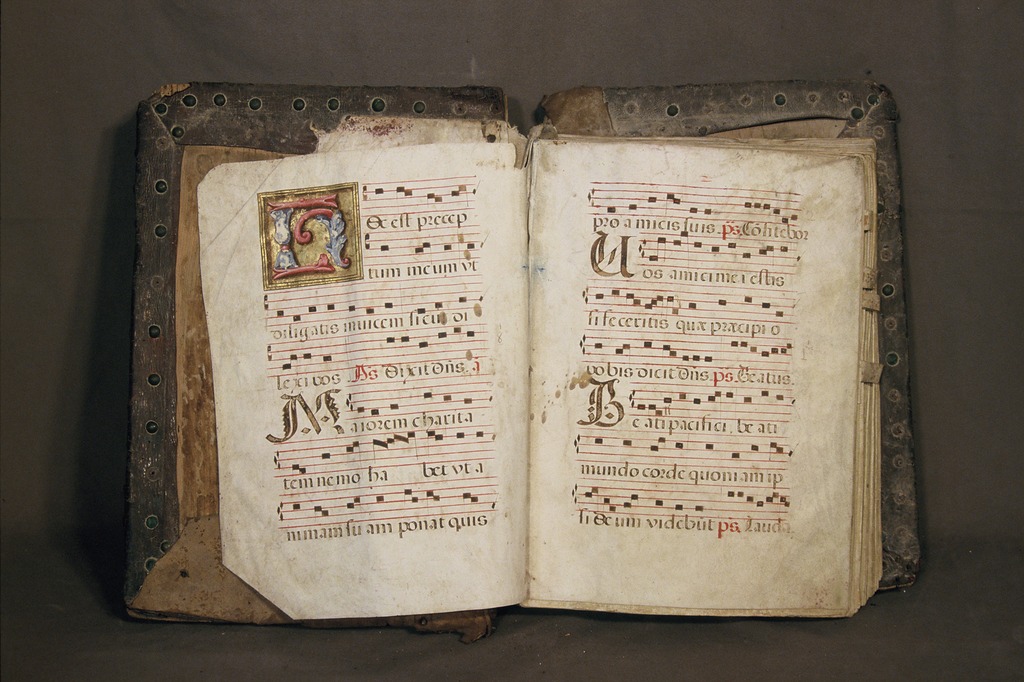 H
Oc est precep
tum meum vt
diligatis inuicem sicut di
lexi vos. Ps Dixit dñs. ã
Maiorem charita
tem nemo ha bet vt a
nimam su am ponat quis
pro amicis suis. ps. Cōfitebor
Uos amici mei estis
si feceritis quæ præcipio
vobis dicit dñs. ps. Beatus.
Beati pacifici, beati
mundo corde quoniam ip
si Deum videbūt ps. Lauda.